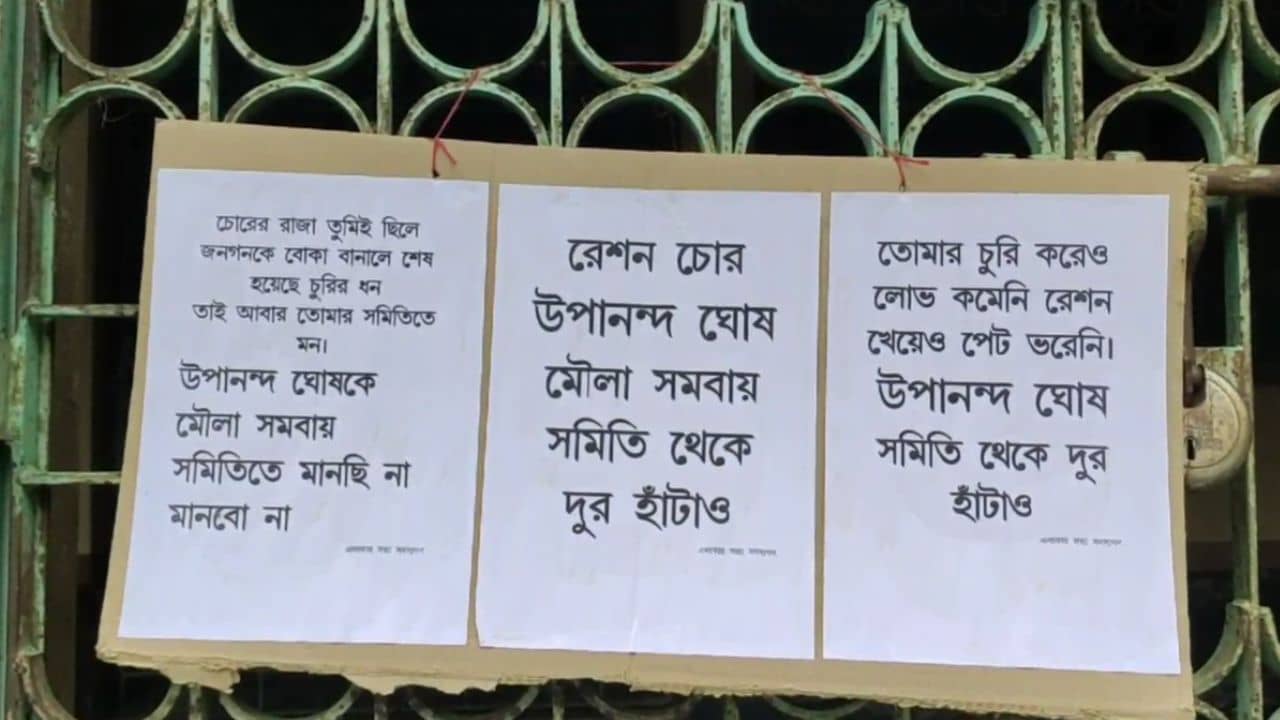 চোরের রাজা তুমিই ছিলে
জনগনকে বোকা বানালে শেষ
হয়েছে চুরির ধন
তাই আবার তোমার সমিতিতে
মন।
উপানন্দ ঘোষকে
মৌলা সমবায়
সমিতিতে মানছি না
মানবো না
রেশন চোর
উপানন্দ ঘোষ
মৌলা সমবায়
সমিতি থেকে
দুর হাঁটাও
তোমার চুরি করেও
লোভ কমেনি রেশন
খেয়েও পেট ভরেনি।
উপানন্দ ঘোষ
সমিতি থেকে দুর
হাঁটাও